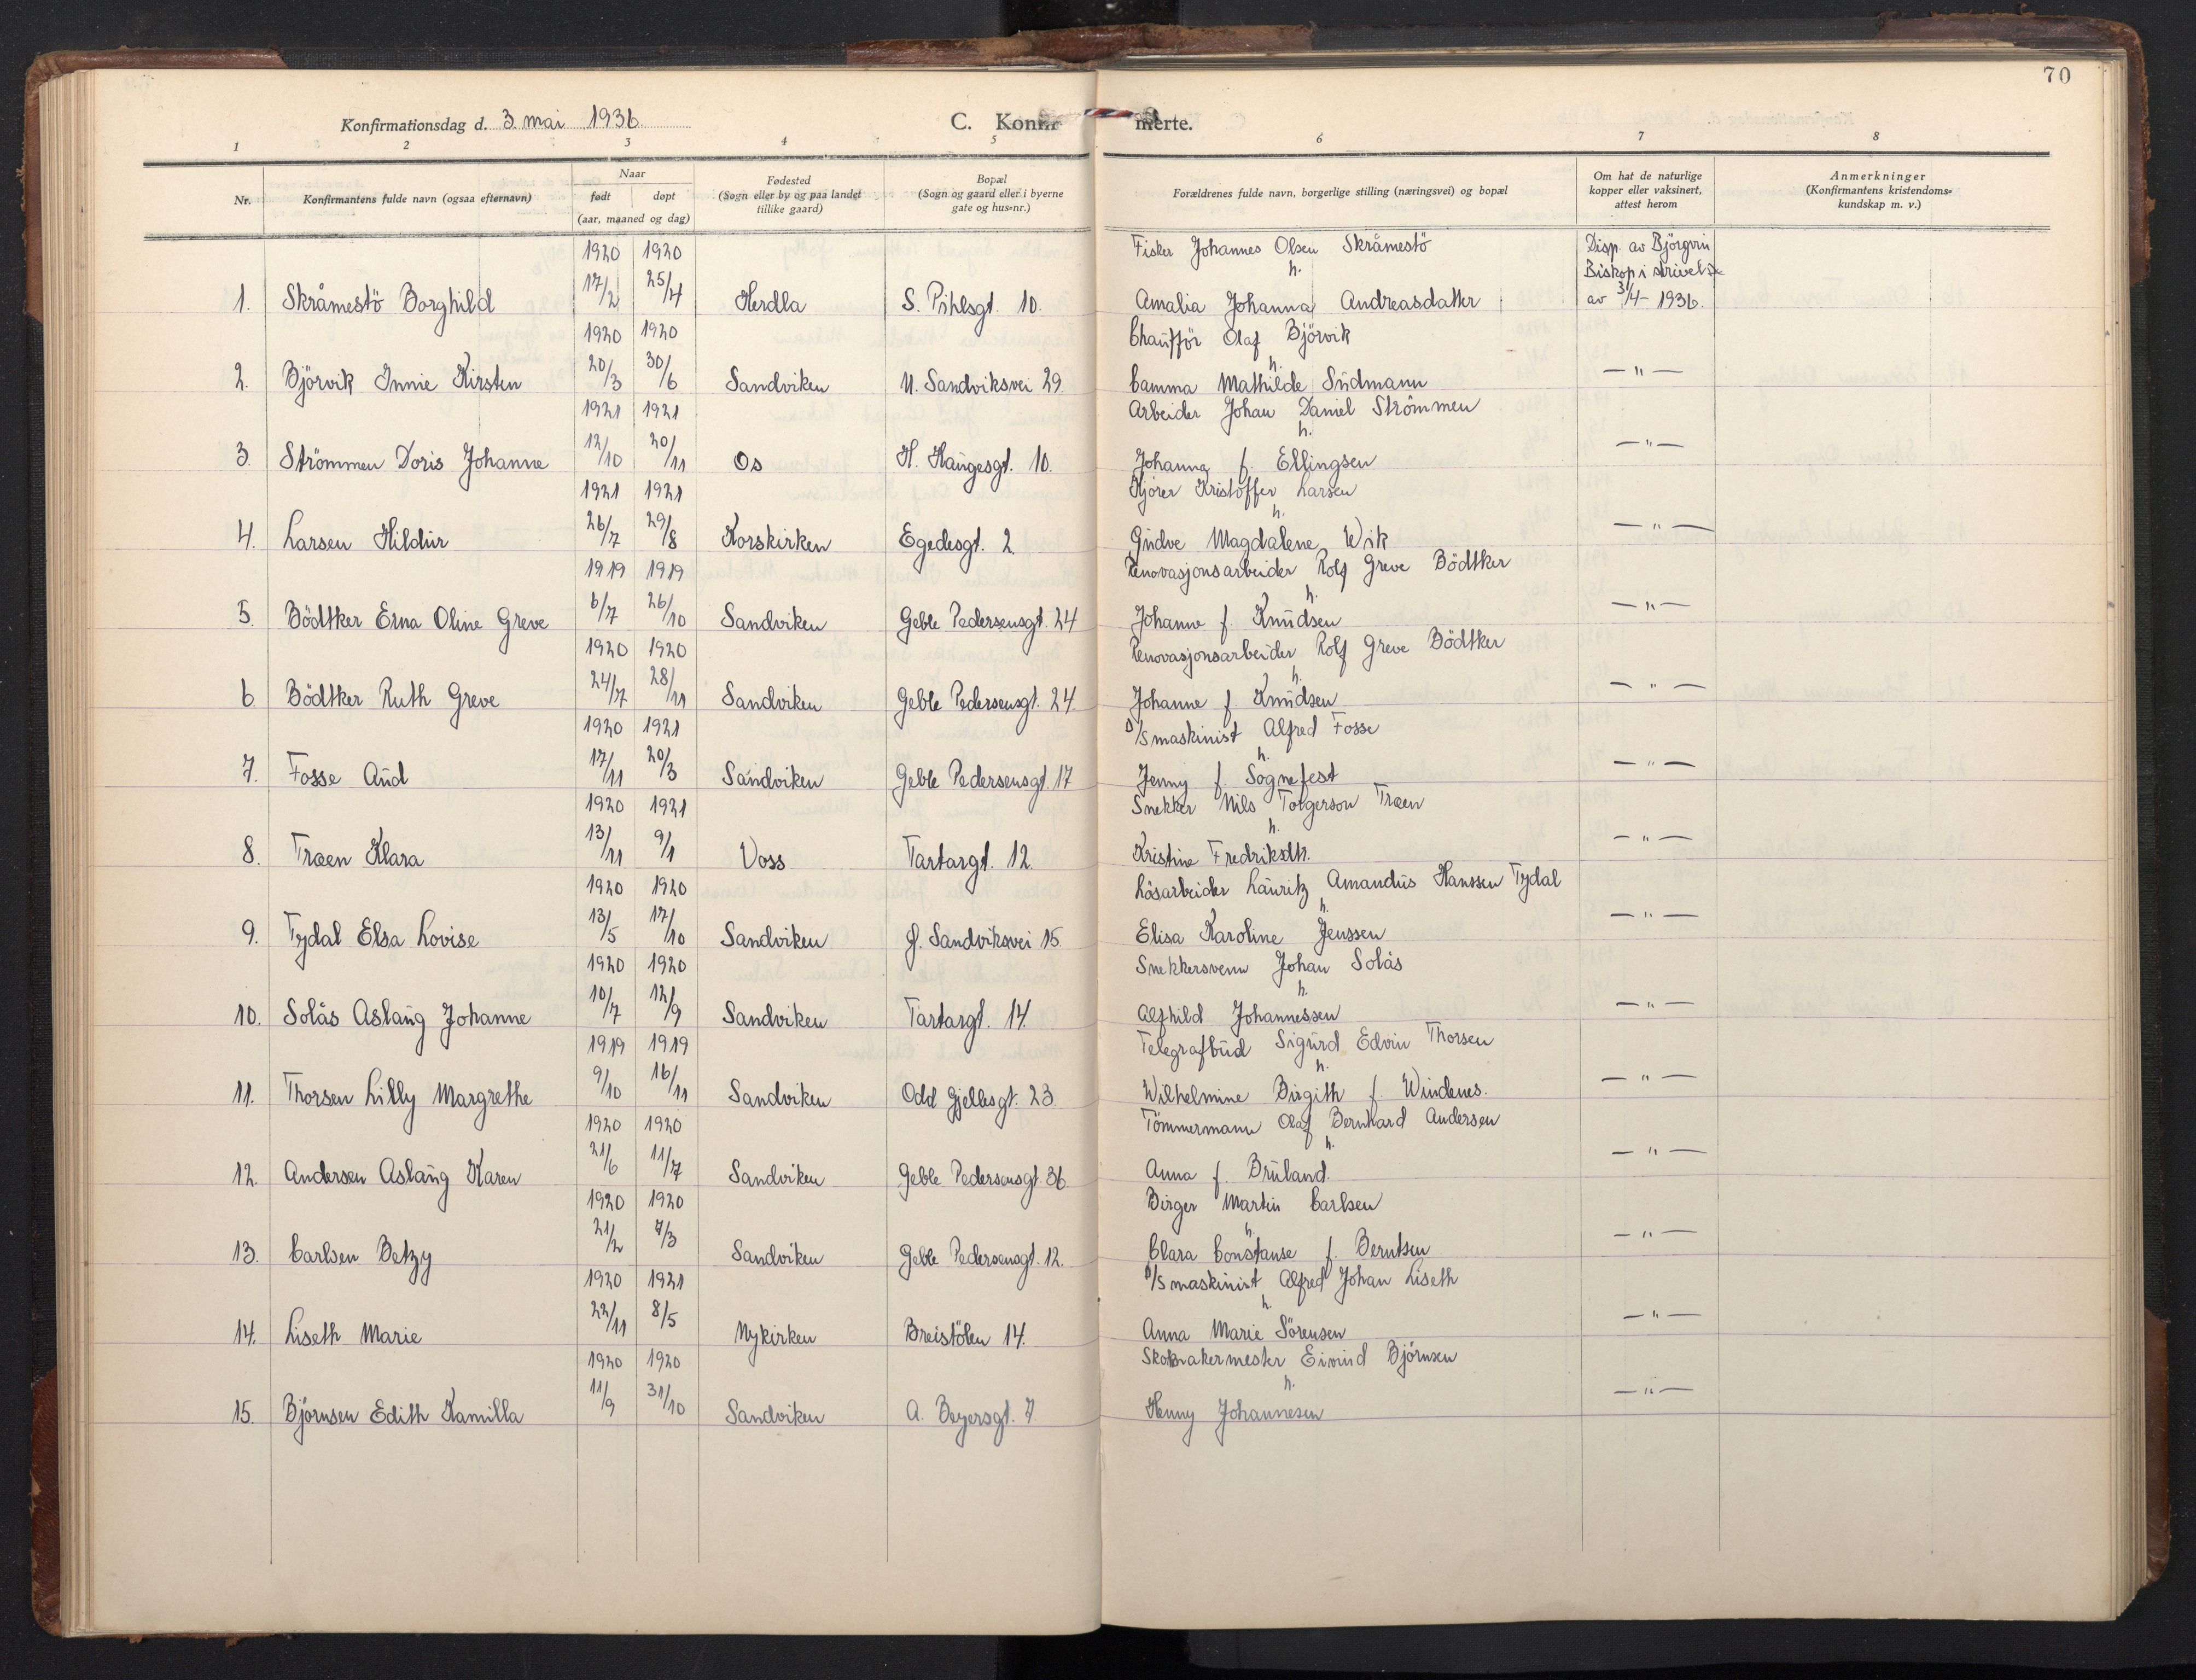 70
Konfirmationsdag d. 3. mai 1936.
C. Konfirmerte.
1 2 3 4 5 6 7 8
Nr.
Konfirmantens fulde navn (ogsaa efternavn)
Naar
født døpt
(aar, maaned og dag)
Fødested
(Sogn eller by og paa landet
tillike gaard)
Bopæl
(Sogn og gaard eller i byerne
gate og hus-nr.)
Forældrenes fulde navn, borgerlige stilling (næringsvei) og bopæl
Om hat de naturlige
kopper eller vaksinert,
attest herom
Anmerkninger
(Konfirmantens kristendoms-
kundskap m. v.)
1920 1920 Fisker Johannes Olsen Skråmestö Disp. av Björgvin
17/2 25/4 h. Biskop i skrivelse
1. Skråmestö Borghild Herdla S. Pihlsgt. 10. Amalia Johanna Andreasdatter av 3/4 - 1936.
1920 1920 Chauffför Olaf Björvik
20/3 30/6 h. — " —
2. Björvik Innie Kirsten Sandviken N. Sandviksvei 29. Camma Mathilde Südmann
1921 1921 Arbeider Johan Daniel Strömmen
12/10 20/11 h. — " —
3. Strömmen Doris Johanne Os H. Haugesgt. 10. Johanna f. Ellingsen
1921 1921 Kjörer Kristoffer Larsen
26/7 29/8 h. — " —
4. Larsen Hildur Korskirken Egedesgt. 2. Gudve Magdalene Wik
1919 1919 Renovasjonsarbeider Rolf Greve Bödtker
6/7 26/10 h. — " —
5. Bödtker Erna Oline Greve Sandviken Geble Pedersensgt. 24 Johanne f. Knudsen
1920 1920 Renovasjonsarbeider Rolf Greve Bödtker
24/7 28/11 h. — " —
6. Bödtker Ruth Greve Sandviken Geble Pedersensgt. 24. Johanne f. Knudsen
1920 1921 D/S maskinist Alfred Fosse
17/11 20/3 h. — " —
7. Fosse Aud Sandviken Geble Pedersensgt. 17 Jenny f. Sognefest
1920 1921 Snekker Nils Torgerson Træen
13/11 9/1 h. — " —
8. Træen Klara Voss Tartargt. 12. Kristine Fredriksdtr.
1920 1920 Lösarbeider Lauritz Amandus Hanssen Tydal
13/5 17/10 h. — " —
9. Tydal Elsa Lovise Sandviken Sandviksvei 15. Elisa Karoline Jenssen
1920 1920 Snekkersvenn Johan Solås
10/7 12/9 h. — " —
10. Solås Aslaug Johanne Sandviken Tartargt. 14. Alfhild Johannessen
1919 1919 Telegrafbud Sigurd Edvin Thorsen
9/10 16/11 h. — " —
11. Thorsen Lilly Margrethe Sandviken Odd Gjellesgt. 23. Wilhelmine Birgith f. Windenes.
1920 1920 Tömmermann Olaf Bernhard Andersen
21/6 11/7 h. — " —
12. Andersen Aslaug Karen Sandviken Geble Pedersensgt. 36 Anna f. Bruland.
1920 1920 Birger Martin Carlsen
21/2 7/3 h. — " —
13. Carlsen Betzy Sandviken Geble Pedersensgt. 12. Clara Constanse f. Berntsen
1920 1921 D/S maskinist Alfred Johan Liseth
22/11 8/5 h. — " —
14. Liseth Marie Nykirken Breistölen 14. Anna Marie Sörensen
1920 1920 Skomakermester Eivind Björnsen
11/9 31/10 h. — " —
15. Björnsen Edith Kamilla Sandviken A. Beyersgt. 7 Henny Johannesen